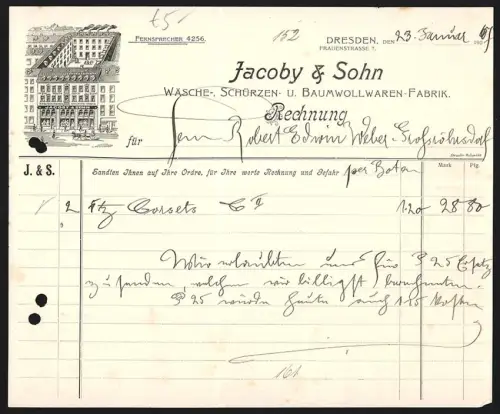 £5
152
Fernsprecher 4256.
Dresden, den 23. Januar 190
Frauenstrasse 7.
Jacoby & Sohn
Wäsche-, Schürzen- u. Baumwollwaren-Fabrik.
Rechnung
für Herrn Robert Edwin Weber, Großröhrsdorf
J. & S.
Sandten Ihnen auf Ihre Ordre, für Ihre werte Rechnung und Gefahr per Boten
Mark Pfg.
2 Dtz Corsets 1.20 28 80
Wir erlaubten uns für P 25 Ersatz
zu senden, welchen wir billigst berechneten.
P 25 würde heute auch 1.25 kosten
161